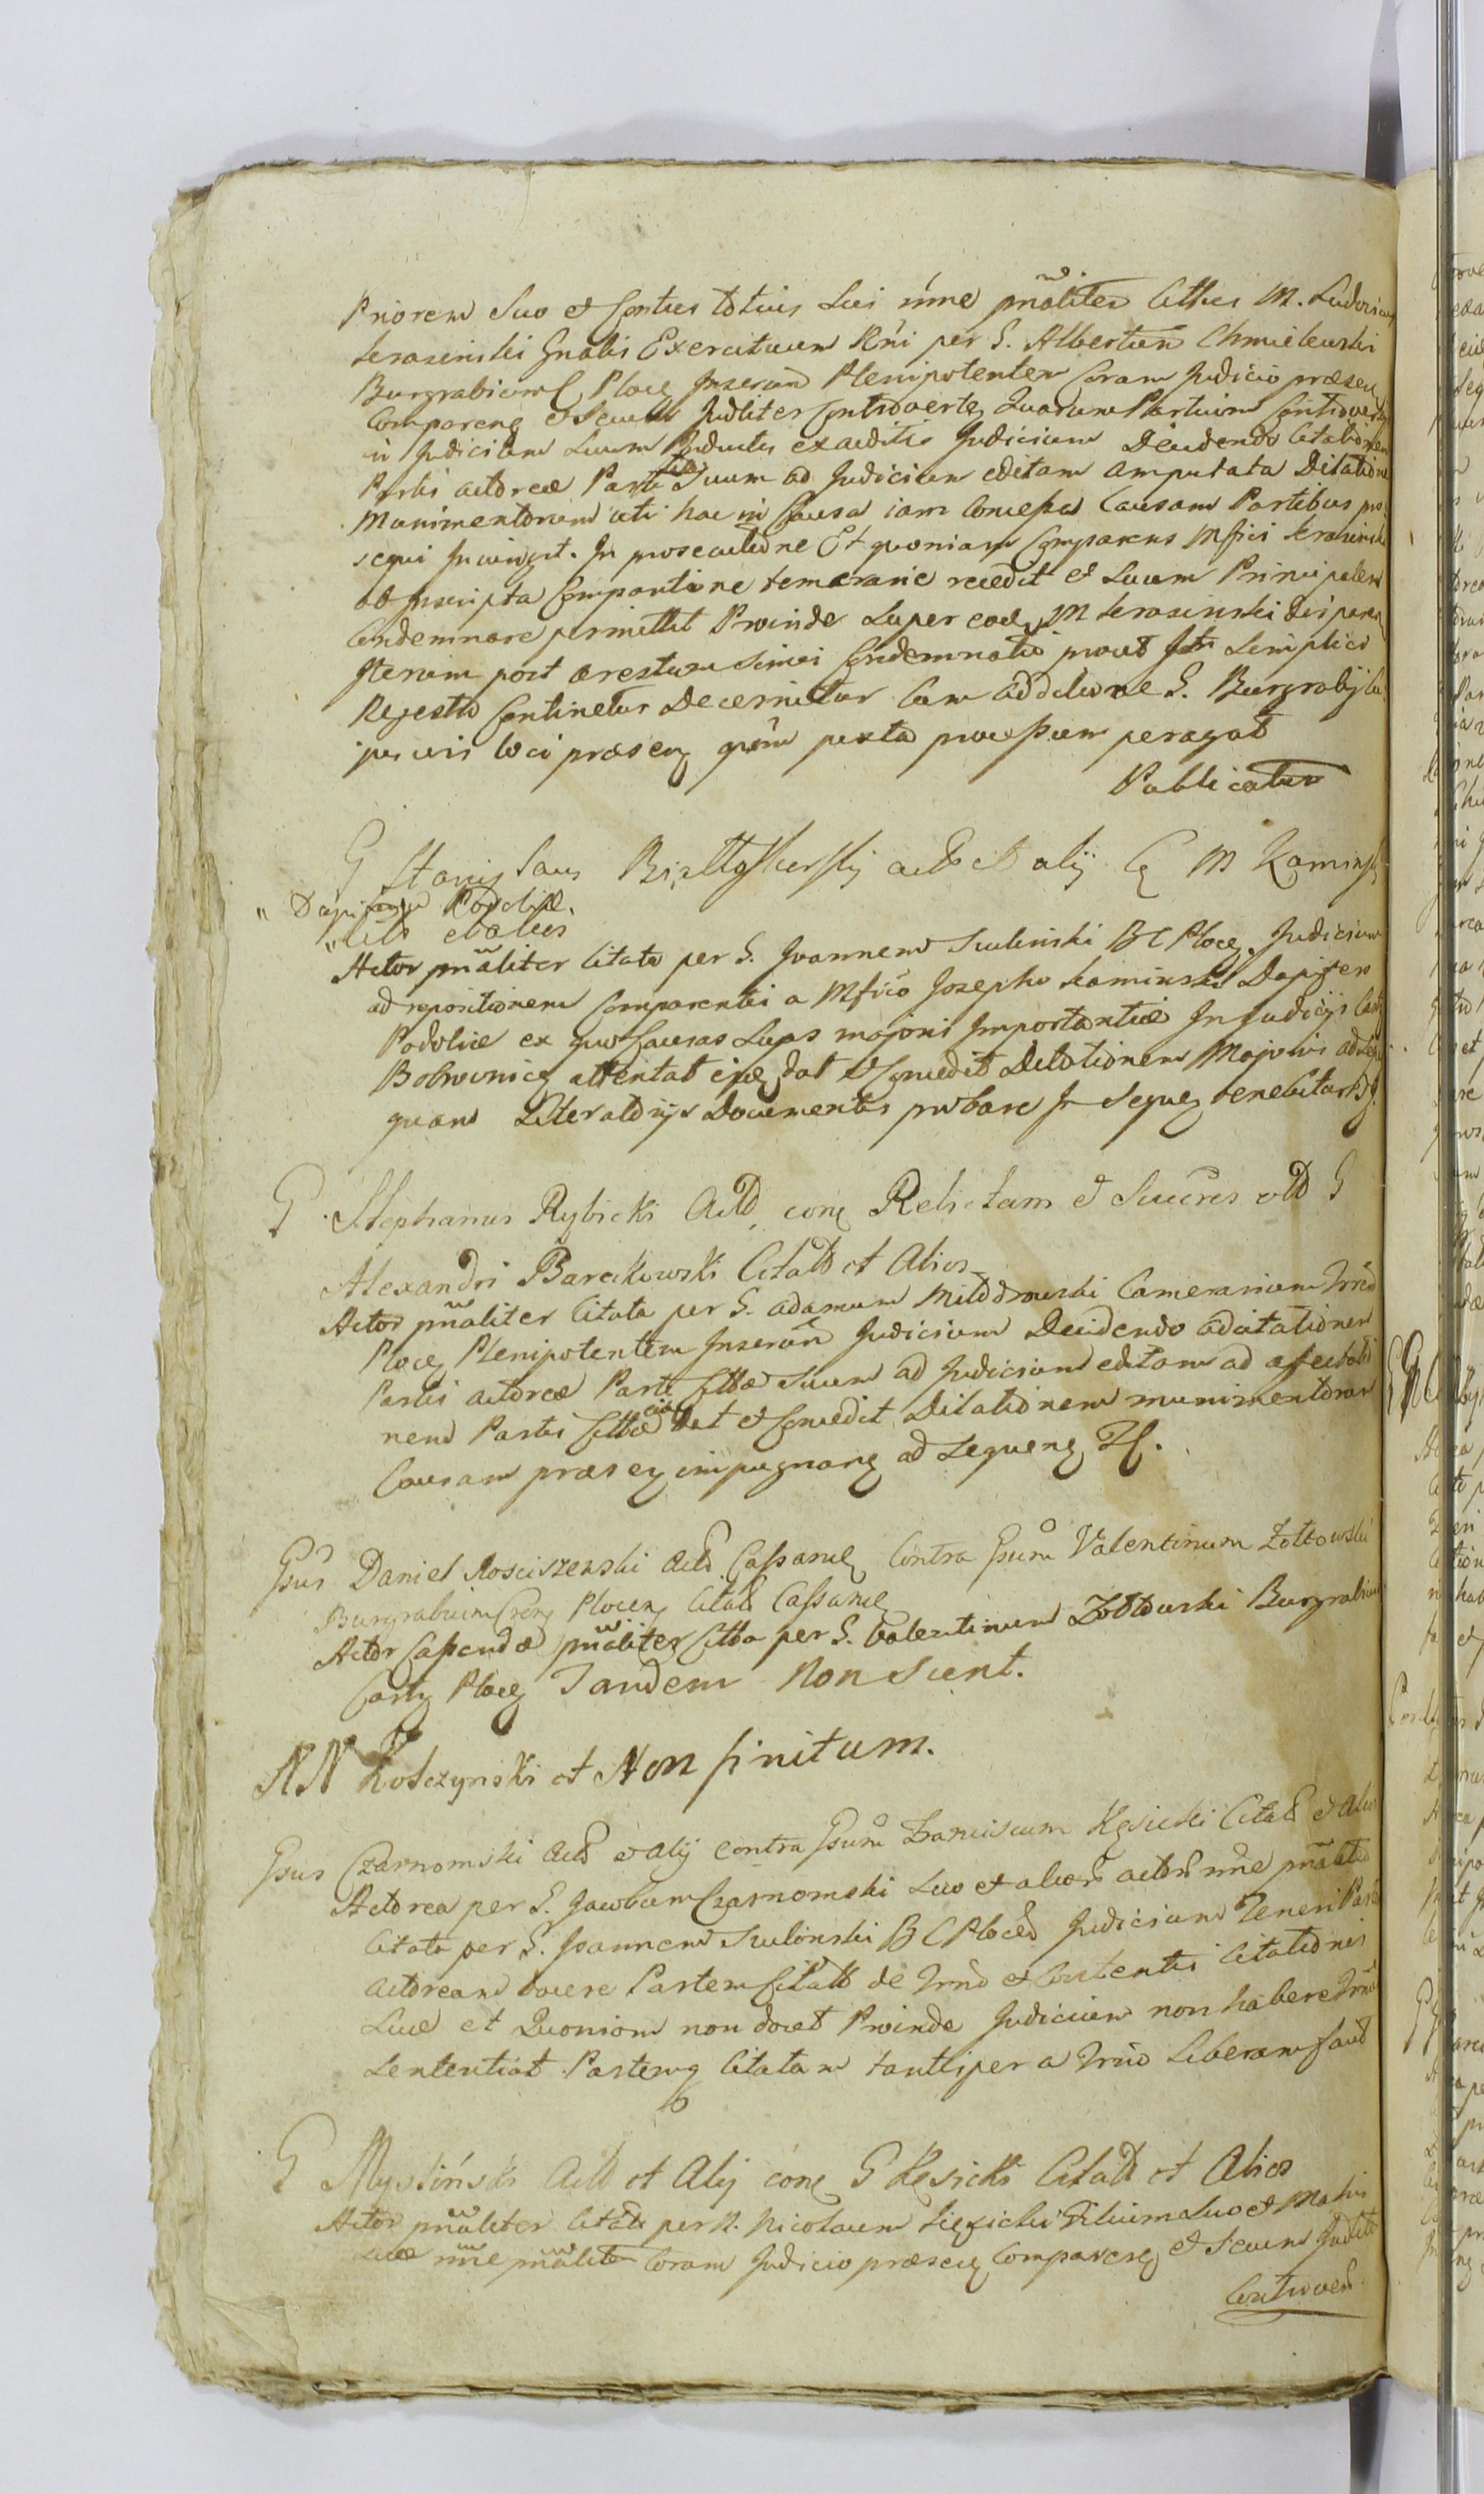 Priorem Suo et Consortis totius Sui nne pnaliter Cittus M. Ludovicus
Krasinski Gnalis Exercituum Rni per G. Albertum Chmielewski
Burgrabium C Ploceñ Inserum Plenipotentem Coram Judicio præseñ
Compareng et Secum Judliter Controverteñ Quarum Partium Controversijs
in Judicium Suum Inductis exauditis Judicium Decidendo Citationem
Partis actoreæ Parti Citæ Suum ad Judicium editam amputata Dilatione
Munimentorum uti hac in Causa iam Concessa Causam Partibus pro
sequi Iniungit. In prosecutione Et quoniam Comparens Mfici Krasinski
ab Inscripta Comparitione temerarie recedit et Suum Principalem
Condemnare permittit Proinde Super eodem M Krasinski
Iterum post arestum Simei Condemnatio prout In Simplici
Regestro Continetur Decernitur Cum additione G. Burgrabij Cu
jusvis loci præseñ qvem juxta processum peragat
Publicatur
G Stanislaus act et alij Cñ M Kaminski
" Dapiferum Podoliæ
" Citt et alios
Actor pnaliter Citata per G. Joannem Sulinski BC Ploceñ Judicium
ad repositionem Comparentis a Mfico Josepho Kaminski Dapifero
Podoliæ ex quo Causas Supas majoris Importantiæ In Judicijs Castr
Bobrovniceñ attentat ejusq dat et Concedit Dilationem Majoris ad Seq
quam Literatorijs Documentis probare In Sequeñ tenebitur
G. Stephanus Rybicki Act conq Relictam et Succres olD G
Alexandri Barcikowski Citatt et Alios
Actor pnaliter Citata per G. Adamum Milodrowski Camerarium Trrum
Ploceñ Plenipotentem Inserum Judicium Decidendo ad citationem
Partis actoreæ Parti Cittæ Suum ad Judicium editam ad affectatio
nem Partis Cittæ eius dat et Concedit Dilationem munimentorum
Causam præseñ impugnang ad Sequeng Tl.
Gsus Daniel Rosciszewski Act Cassanđ Contra Gsum Valentinum Zołtowski
Burgrabium Cren Ploceng Citat Cassanđ
Actor Cassandæ pnaliter Citta per G. Valentinum Zołtowski Burgrabium
Castr Ploceñ Tandem Non Sient.
NN Kolczynski et Non finitum.
Gsus Czarnomski act et alij contra Gsum Franciscum Kęsicki Citat et alios
Actorea per G. Jacobum Czarnomski Suo et alior actor nne pnaliter
Citata per G. Joannem Sulinski BC Ploceñ Judicium Teneri Partem
Actoream docere Partem Citatt de Trno et Contentis Citationis
Suæ et Quoniam non docet Proinde Judicium non habere Trnum
Sententiat Partemq Citatam tantisper a Trno Liberam facit
G Mysliński Act et Alij conq G Kęsicki Citatt et Alios
Actor pnaliter Citata per N. Nicolaum Kięsicki Filium Suo et Matris
Suæ nne pnaliter Coram Judicio præseñ Compareng et Secum Judlite
Controver